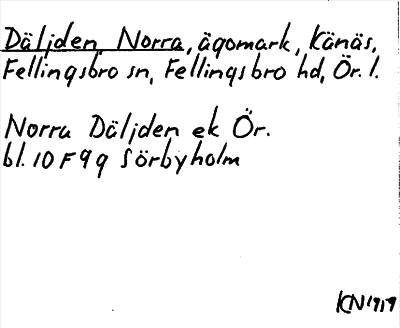 Däljden, Norra, ägomark, Känäs,
Fellingsbro sn, Fellingsbro hd, Ör. l.
Norra Däljden ek Ör.
bl. 10 F 9 g Sörbyholm
KN 1919